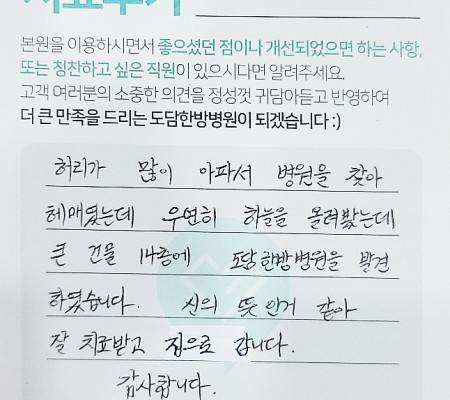 치료후기
본원을 이용하시면서 좋으셨던 점이나 개선되었으면 하는 사항,
또는 칭찬하고 싶은 직원이 있으시다면 알려주세요.
고객 여러분의 소중한 의견을 정성껏 귀담아듣고 반영하여
더 큰 만족을 드리는 도담한방병원이 되겠습니다 :)
허리가 많이 아파서 병원을 찾아
헤매였는데 우연히 하늘을 올려봤는데
큰 건물 14층에 도담한방병원을 발견
하였습니다. 신의 뜻인거 같아
잘 치료받고 집으로 갑니다.
감사합니다.